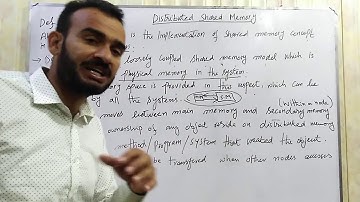 Distributed Shared Memory
Def
is the Implementation of shared memory concept
loosely coupled shared memory model which is
physical memory in the system.
space is provided in this respect, which can be
by all the systems.
(Within a node)
moves between main memory and secondary memory
ownership of any object reside on distributed memory
method/program/system that created the object.
be transferred when other nodes access